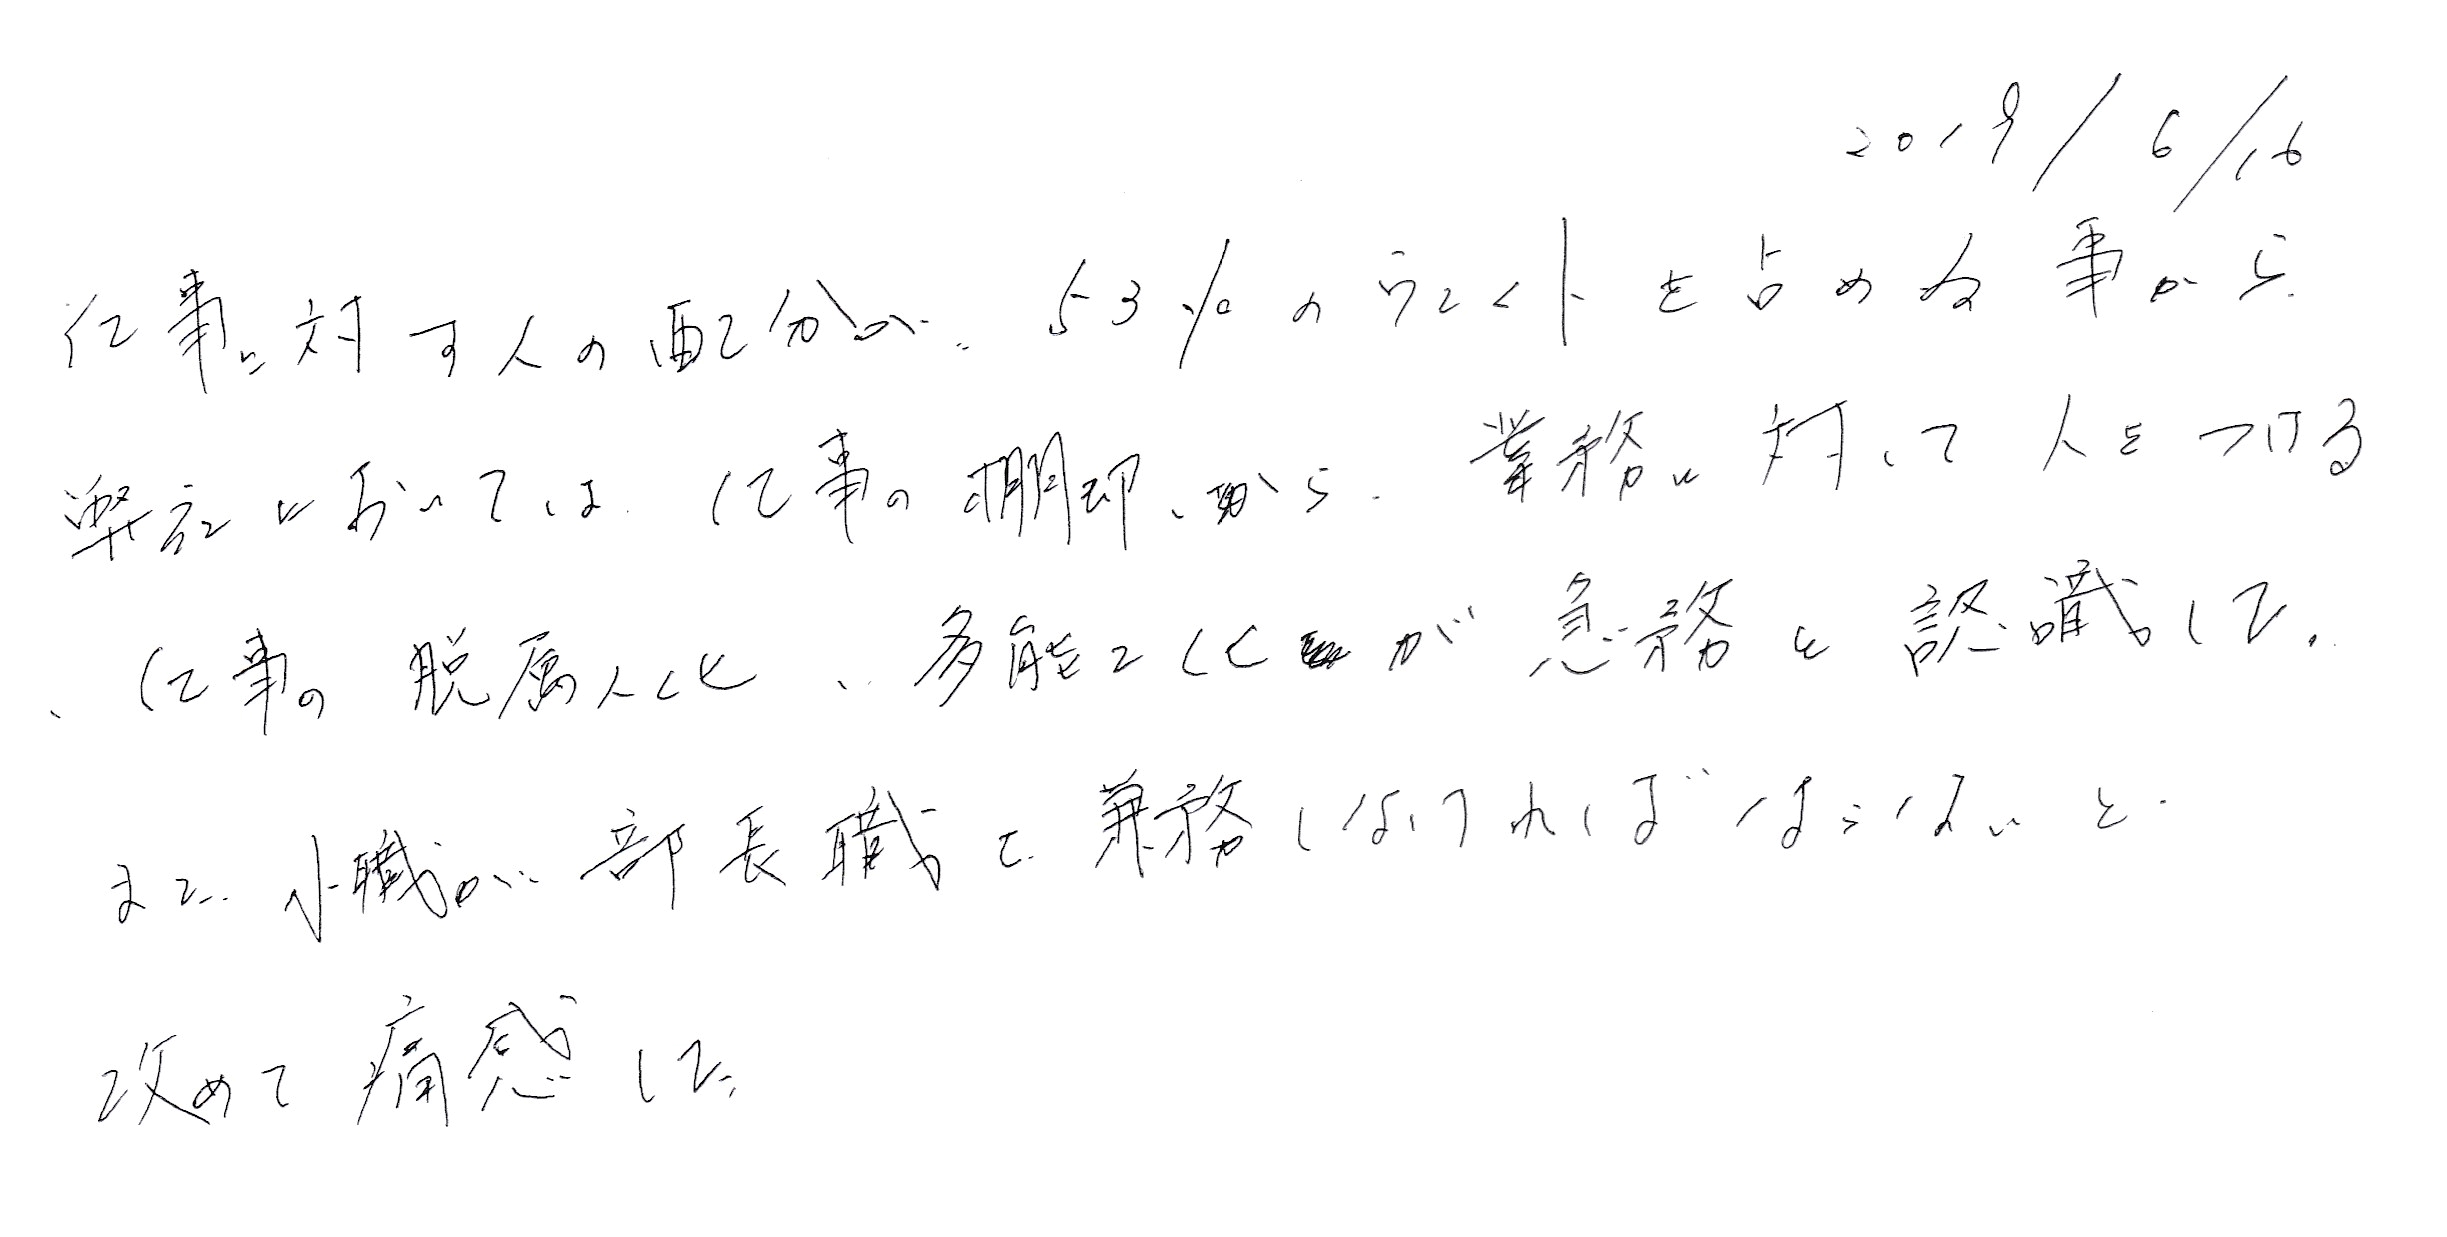 2019/6/16
仕事に対す人の配分が、53%のウェイトを占める事から、
弊社においては、仕事の棚卸、から、業務に対して人をつける
、仕事の脱属人化、多能工化が急務と認識した。
また、小職が、部長職と兼務しなければならないと、
改めて痛感した。